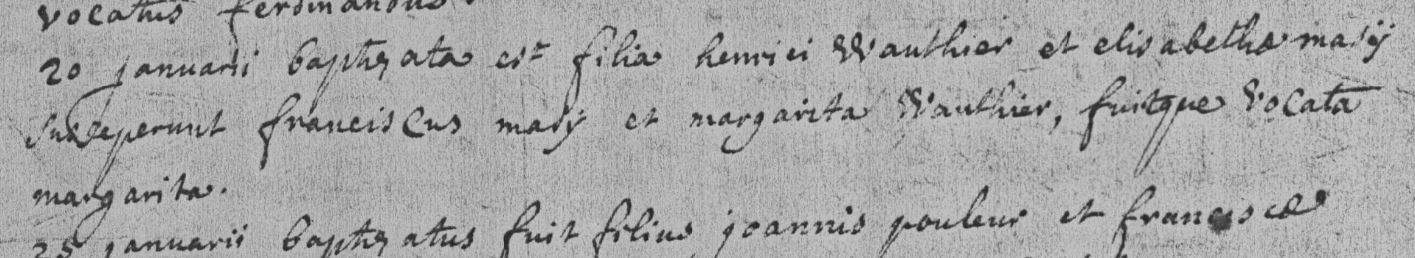 vocatus ferdinandus.
20 januarii baptzata est filia henrici Wauthier et elisabethæ masÿ
susceperunt franciscus masÿ et margarita Wauthier, fuitque vocata
margarita.
25 januarii baptzatus fuit filius joannis pouleur et franciscæ